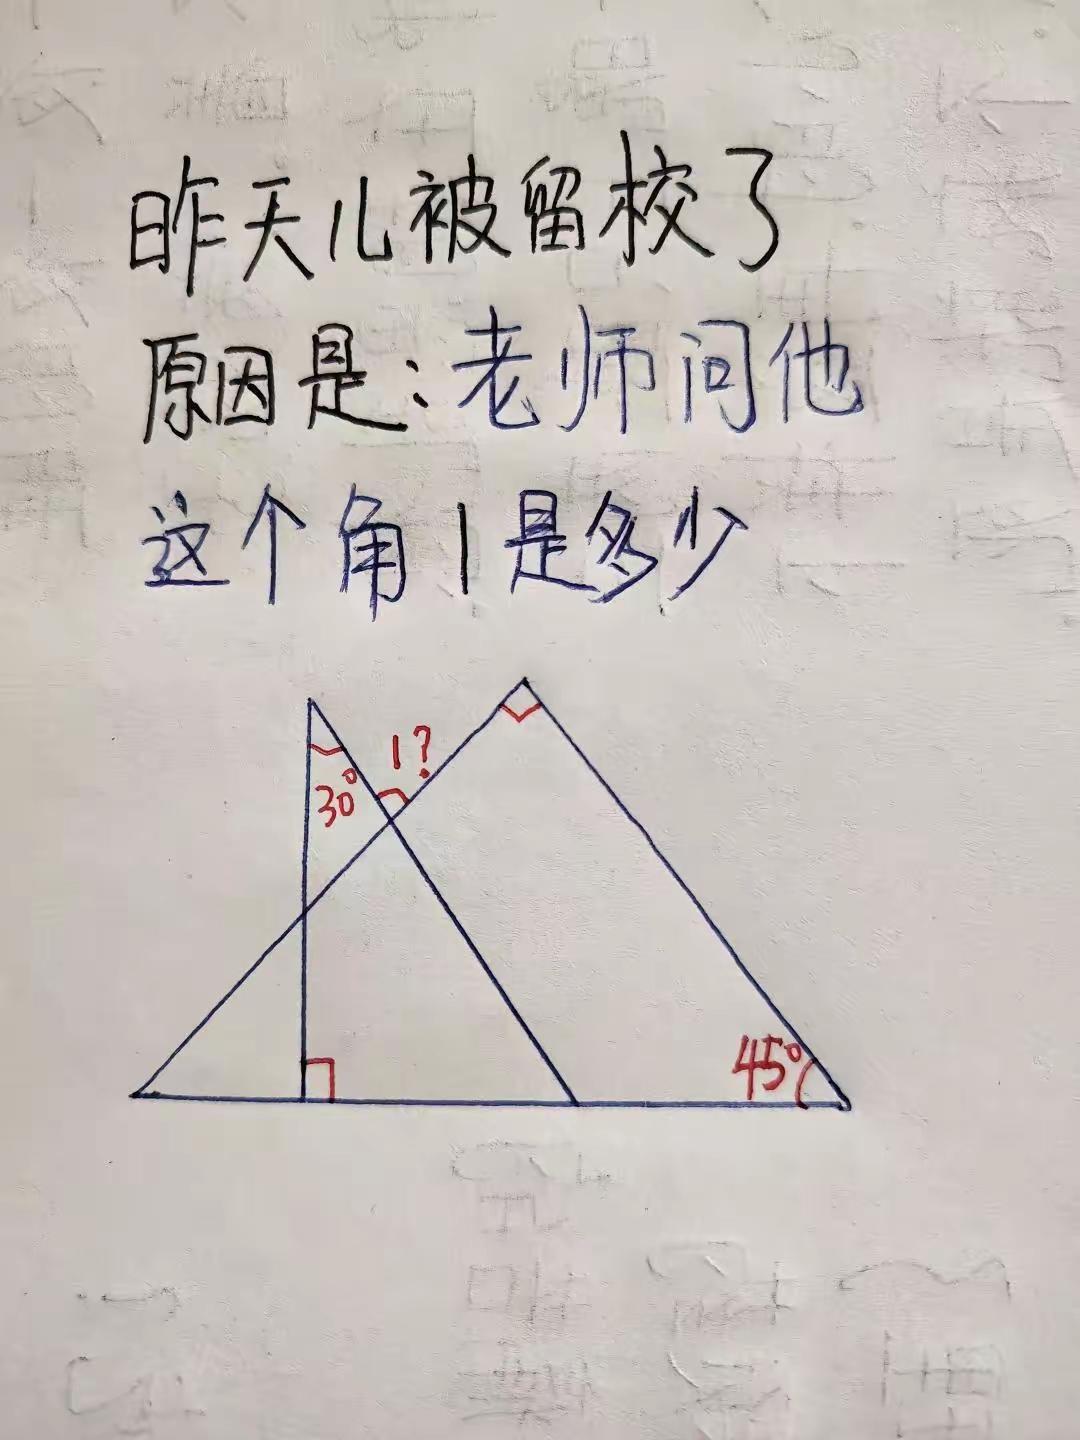 昨天儿被留校了
原因是:老师问他
这个角1是多少
1?
30°
45°